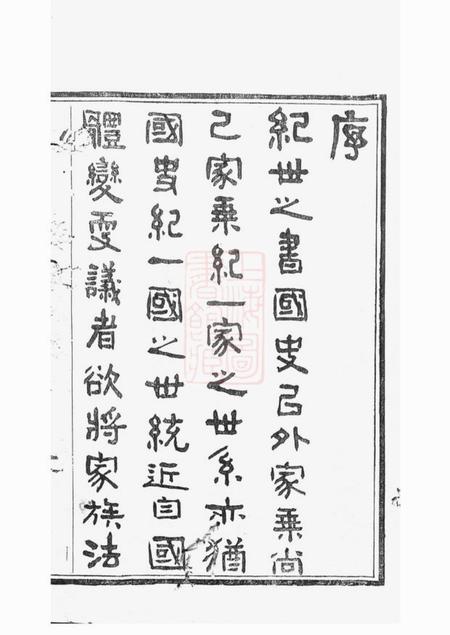 序
紀世之書國史已外家乘尚
已家乘紀一家之世系亦猶
國史紀一國之世統近自國
體變更議者欲將家族法